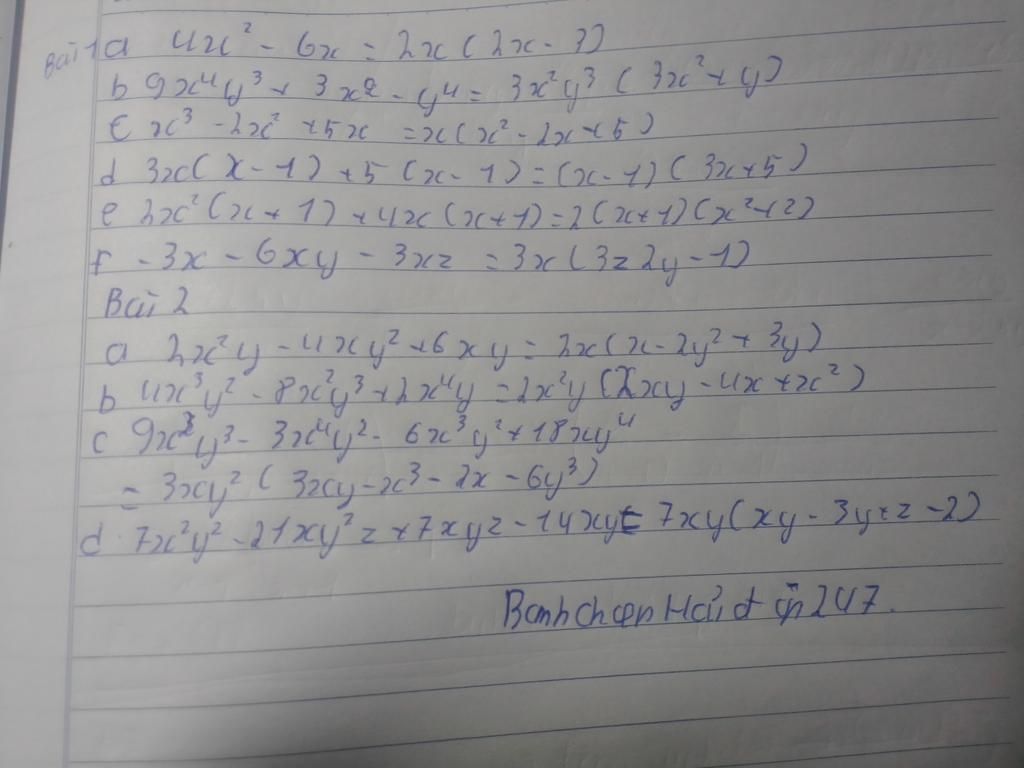 Bài 1 a 4x² - 6x = 2x(2x - 3)
b 9x⁴y³ + 3x² - y⁴ = 3x²y³ (3x² + y)
c x³ - 2x² + 5x = x(x² - 2x + 5)
d 3x(x - 1) + 5 (x - 1) = (x - 1)(3x + 5)
e 2x²(x + 1) + 4x(x + 1) = 2(x + 1)(x² + 2)
f - 3x - 6xy - 3xz = 3x(3z 2y - 1)
Bài 2
a 2x²y - 4xy² + 6xy = 2x(x - 2y² + 3y)
b 4x³y² - 8x²y³ + 2x⁴y = 2x²y (2xy - 4x + x²)
c 9x³y³ - 3x⁴y² - 6x³y² + 18xy⁴
= 3xy² (3xy - x³ - 2x - 6y³)
d. 7x²y² - 21xy²z + 7xyz - 14xy = 7xy(xy - 3y + z - 2)
247.